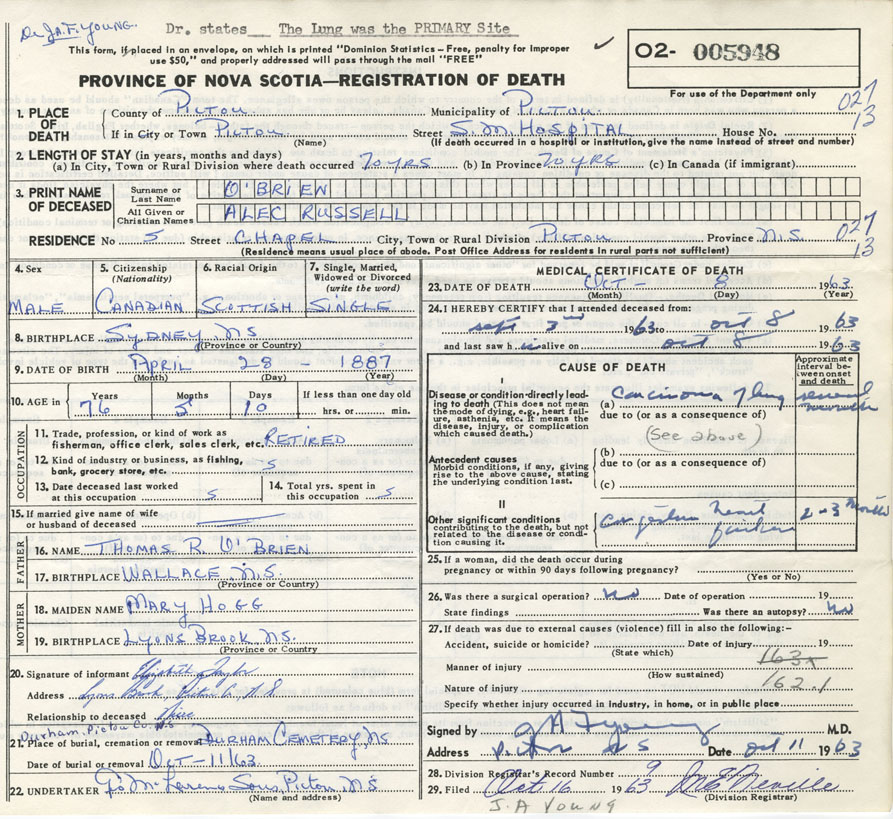 Dr. J.A.F. YOUNG.
Dr. states The Lung was the PRIMARY Site
This form, if placed in an envelope, on which is printed "Dominion Statistics – Free, penalty for improper
use $50," and properly addressed will pass through the mail "FREE"
02- 005948
For use of the Department only
PROVINCE OF NOVA SCOTIA—REGISTRATION OF DEATH
027
13
1. PLACE OF DEATH
County of PICTOU Municipality of PICTOU
If in City or Town PICTOU Street S.M. HOSPITAL House No.
(Name) (If death occurred in a hospital or institution, give the name instead of street and number)
2. LENGTH OF STAY (in years, months and days)
(a) In City, Town or Rural Division where death occurred 70 YRS (b) In Province 70 YRS (c) In Canada (if immigrant)
3. PRINT NAME OF DECEASED
Surname or Last Name O'BRIEN
All Given or Christian Names ALEC RUSSELL
RESIDENCE No 5 Street CHAPEL City, Town or Rural Division PICTOU Province N.S.
027
13
(Residence means usual place of abode. Post Office Address for residents in rural parts not sufficient)
4. Sex
MALE
5. Citizenship
(Nationality)
CANADIAN
6. Racial Origin
SCOTTISH
7. Single, Married,
Widowed or Divorced
(write the word)
SINGLE
8. BIRTHPLACE SYDNEY, NS
(Province or Country)
9. DATE OF BIRTH APRIL 28 - 1887
(Month) (Day) (Year)
10. AGE in
Years Months Days If less than one day old
76 5 10 hrs. or min.
OCCUPATION
11. Trade, profession, or kind of work as
fisherman, office clerk, sales clerk, etc. RETIRED
12. Kind of industry or business, as fishing,
bank, grocery store, etc.
13. Date deceased last worked
at this occupation
14. Total yrs. spent in
this occupation
15. If married give name of wife
or husband of deceased
FATHER
16. NAME THOMAS R. O'BRIEN
17. BIRTHPLACE WALLACE N.S.
(Province or Country)
MOTHER
18. MAIDEN NAME MARY HOGG
19. BIRTHPLACE LYONS BROOK NS.
(Province or Country)
20. Signature of informant Elizabeth Taylor
Address Lyons Brook Pictou Co N S
Relationship to deceased Niece
Durham, Pictou Co. N.S
21. Place of burial, cremation or removal DURHAM CEMETERY, NS
Date of burial or removal OCT-11/63.
22. UNDERTAKER Sons, Pictou, NS
(Name and address)
MEDICAL CERTIFICATE OF DEATH
23. DATE OF DEATH Oct - 8 1963
(Month) (Day) (Year)
24. I HEREBY CERTIFY that I attended deceased from:
sept 3rd 1963 to oct 8 1963
and last saw him alive on oct 8 1963
CAUSE OF DEATH
Approximate interval between onset and death
I
Disease or condition directly leading to death (This does not mean the mode of dying, e.g., heart failure, asthenia, etc. It means the disease, injury, or complication which caused death.)
(a) Carcinoma of lung several months
due to (or as a consequence of)
(See above)
Antecedent causes
Morbid conditions, if any, giving rise to the above cause, stating the underlying condition last.
(b)
due to (or as a consequence of)
(c)
II
Other significant conditions
contributing to the death, but not related to the disease or condition causing it.
Congestive heart failure 2-3 months
25. If a woman, did the death occur during
pregnancy or within 90 days following pregnancy?
(Yes or No)
26. Was there a surgical operation? No Date of operation 19
State findings Was there an autopsy? No
27. If death was due to external causes (violence) fill in also the following:-
Accident, suicide or homicide? Date of injury 19
(State which)
Manner of injury 163x
(How sustained)
Nature of injury 162.1
Specify whether injury occurred in industry, in home, or in public place
Signed by M.D.
Address Pictou N S Date oct 11 1963
28. Division Registrar's Record Number 9
29. Filed Oct 16 1963
(Division Registrar)
J.A YOUNG